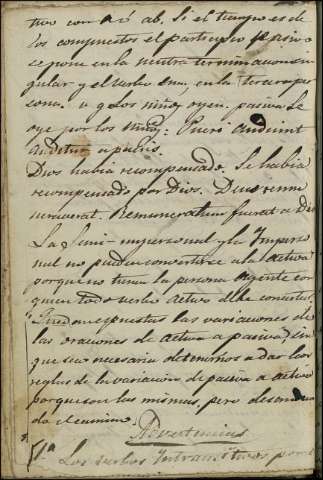 tivo con á ó ab. Si el tiempo es de
los compuestos el participio pasivo
se pone en la neutra terminacion sin
gular, y el verbo Sum, en la tercera per
sona. v. g. Los niños oyen. pasiva Se
oye por los niños: Pueri audiunt
Auditur a pueris.
Dios habia recompensado. Se habia
recompensado por Dios. Deus remu
neraverat. Remuneratum fuerat a Deo
La Semi-impersonal y la Imperso
nal no pueden convertirse a la activa
porque no tienen la persona agente con
quien todo verbo activo debe concertar.
Quedan espuestas las variaciones de
las oraciones de activa a pasiva, sin
que sea necesario detenernos a dar las
reglas de la variacion de pasiva a activa
porque son las mismas, pero desandan
do el camino.
Advertencias
1ª Los verbos Intransitivos por